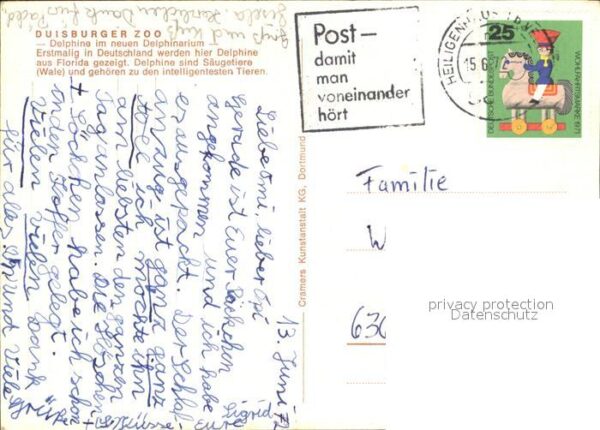 Gruß und Kuß
Gisela Herzlichen Dank für Päckch
DUISBURGER ZOO
— Delphine im neuen Delphinarium —
Erstmalig in Deutschland werden hier Delphine
aus Florida gezeigt. Delphine sind Säugetiere
(Wale) und gehören zu den intelligentesten Tieren.
Post—
damit
man
voneinander
hört
HEILIGENHAUS
15.6.
25
WOHLFAHRTSMARKE 1971
DEUTSCHE BUNDESPOST
13. Juni 72
Liebe Omi, lieber Opi
Gerade ist Euer Päckchen
angekommen und ich habe
es ausgepackt. Der Schlaf-
anzug ist ganz ganz
toll ich möchte ihn
am liebsten den ganzen
Tag anlassen. Die Höschen
+ Söckchen habe ich schon
in den Koffer gelegt.
Vielen vielen Dank
für alles und viele Grüße
+ Küsse Eure Sigrid
Cramers Kunstanstalt KG, Dortmund
Familie
W
630
privacy protection
Datenschutz